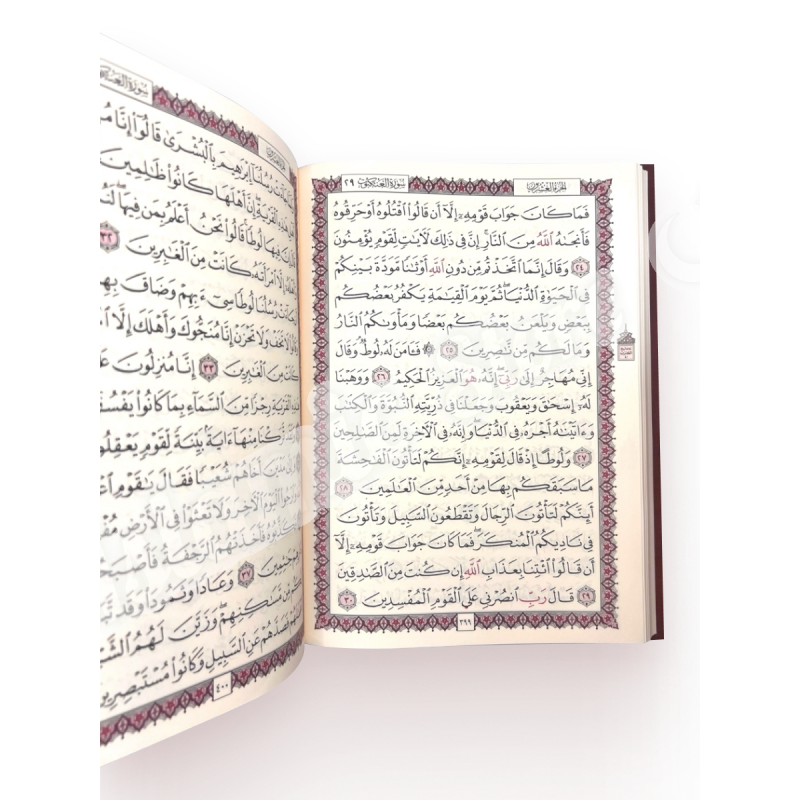 الجزء العشرون
سورة العنكبوت ٢٩
فَمَا كَانَ جَوَابَ قَوْمِهِۦٓ إِلَّآ أَن قَالُوا۟ ٱقْتُلُوهُ أَوْ حَرِّقُوهُ
فَأَنجَىٰهُ ٱللَّهُ مِنَ ٱلنَّارِ ۚ إِنَّ فِى ذَٰلِكَ لَـَٔايَٰتٍ لِّقَوْمٍ يُؤْمِنُونَ
٢٤ وَقَالَ إِنَّمَا ٱتَّخَذْتُم مِّن دُونِ ٱللَّهِ أَوْثَٰنًا مَّوَدَّةَ بَيْنِكُمْ
فِى ٱلْحَيَوٰةِ ٱلدُّنْيَا ۖ ثُمَّ يَوْمَ ٱلْقِيَٰمَةِ يَكْفُرُ بَعْضُكُم
بِبَعْضٍ وَيَلْعَنُ بَعْضُكُم بَعْضًا وَمَأْوَىٰكُمُ ٱلنَّارُ
وَمَا لَكُم مِّن نَّٰصِرِينَ ٢٥ ۞ فَـَٔامَنَ لَهُۥ لُوطٌ ۘ وَقَالَ
إِنِّى مُهَاجِرٌ إِلَىٰ رَبِّىٓ ۖ إِنَّهُۥ هُوَ ٱلْعَزِيزُ ٱلْحَكِيمُ ٢٦ وَوَهَبْنَا
لَهُۥٓ إِسْحَٰقَ وَيَعْقُوبَ وَجَعَلْنَا فِى ذُرِّيَّتِهِ ٱلنُّبُوَّةَ وَٱلْكِتَٰبَ
وَءَاتَيْنَٰهُ أَجْرَهُۥ فِى ٱلدُّنْيَا ۖ وَإِنَّهُۥ فِى ٱلْـَٔاخِرَةِ لَمِنَ ٱلصَّٰلِحِينَ
٢٧ وَلُوطًا إِذْ قَالَ لِقَوْمِهِۦٓ إِنَّكُمْ لَتَأْتُونَ ٱلْفَٰحِشَةَ
مَا سَبَقَكُم بِهَا مِنْ أَحَدٍ مِّنَ ٱلْعَٰلَمِينَ ٢٨
أَئِنَّكُمْ لَتَأْتُونَ ٱلرِّجَالَ وَتَقْطَعُونَ ٱلسَّبِيلَ وَتَأْتُونَ
فِى نَادِيكُمُ ٱلْمُنكَرَ ۖ فَمَا كَانَ جَوَابَ قَوْمِهِۦٓ إِلَّآ
أَن قَالُوا۟ ٱئْتِنَا بِعَذَابِ ٱللَّهِ إِن كُنتَ مِنَ ٱلصَّٰدِقِينَ
٢٩ قَالَ رَبِّ ٱنصُرْنِى عَلَى ٱلْقَوْمِ ٱلْمُفْسِدِينَ ٣٠
٣٩٩
سورة العنكبوت
رُسُلُنَآ إِبْرَٰهِيمَ بِٱلْبُشْرَىٰ قَالُوٓا۟ إِنَّا
ٱلْقَرْيَةِ ۖ إِنَّ أَهْلَهَا كَانُوا۟ ظَٰلِمِينَ
فِيهَا لُوطًا ۚ قَالُوا۟ نَحْنُ أَعْلَمُ بِمَن فِيهَا ۖ
إِلَّا ٱمْرَأَتَهُۥ كَانَتْ مِنَ ٱلْغَٰبِرِينَ ٣٢
رُسُلُنَا لُوطًا سِىٓءَ بِهِمْ وَضَاقَ بِهِمْ
لَا تَخَفْ وَلَا تَحْزَنْ ۖ إِنَّا مُنَجُّوكَ وَأَهْلَكَ إِلَّا
كَانَتْ مِنَ ٱلْغَٰبِرِينَ ٣٣ إِنَّا مُنزِلُونَ
ٱلْقَرْيَةِ رِجْزًا مِّنَ ٱلسَّمَآءِ بِمَا كَانُوا۟ يَفْسُقُونَ
تَّرَكْنَا مِنْهَآ ءَايَةًۢ بَيِّنَةً لِّقَوْمٍ يَعْقِلُونَ
مَدْيَنَ أَخَاهُمْ شُعَيْبًا فَقَالَ يَٰقَوْمِ
وَٱرْجُوا۟ ٱلْيَوْمَ ٱلْـَٔاخِرَ وَلَا تَعْثَوْا۟ فِى ٱلْأَرْضِ
فَأَخَذَتْهُمُ ٱلرَّجْفَةُ
جَٰثِمِينَ ٣٧ وَعَادًا وَثَمُودَا۟ وَقَد
مِّن مَّسَٰكِنِهِمْ ۖ وَزَيَّنَ لَهُمُ
فَصَدَّهُمْ عَنِ ٱلسَّبِيلِ وَكَانُوا۟ مُسْتَبْصِرِينَ
٤٠٠